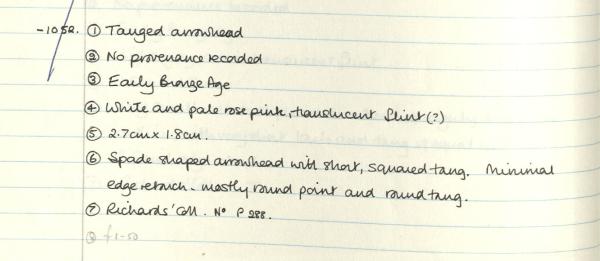 -1052. ① Tanged arrowhead
② No provenance recorded
③ Early Bronze Age
④ White and pale rose pink, translucent flint(?)
⑤ 2.7cm x 1.8cm.
⑥ Spade shaped arrowhead with short, squared tang. Minimal
edge retouch - mostly round point and round tang.
⑦ Richards' Coll. No P 288.
⑧ £1-50